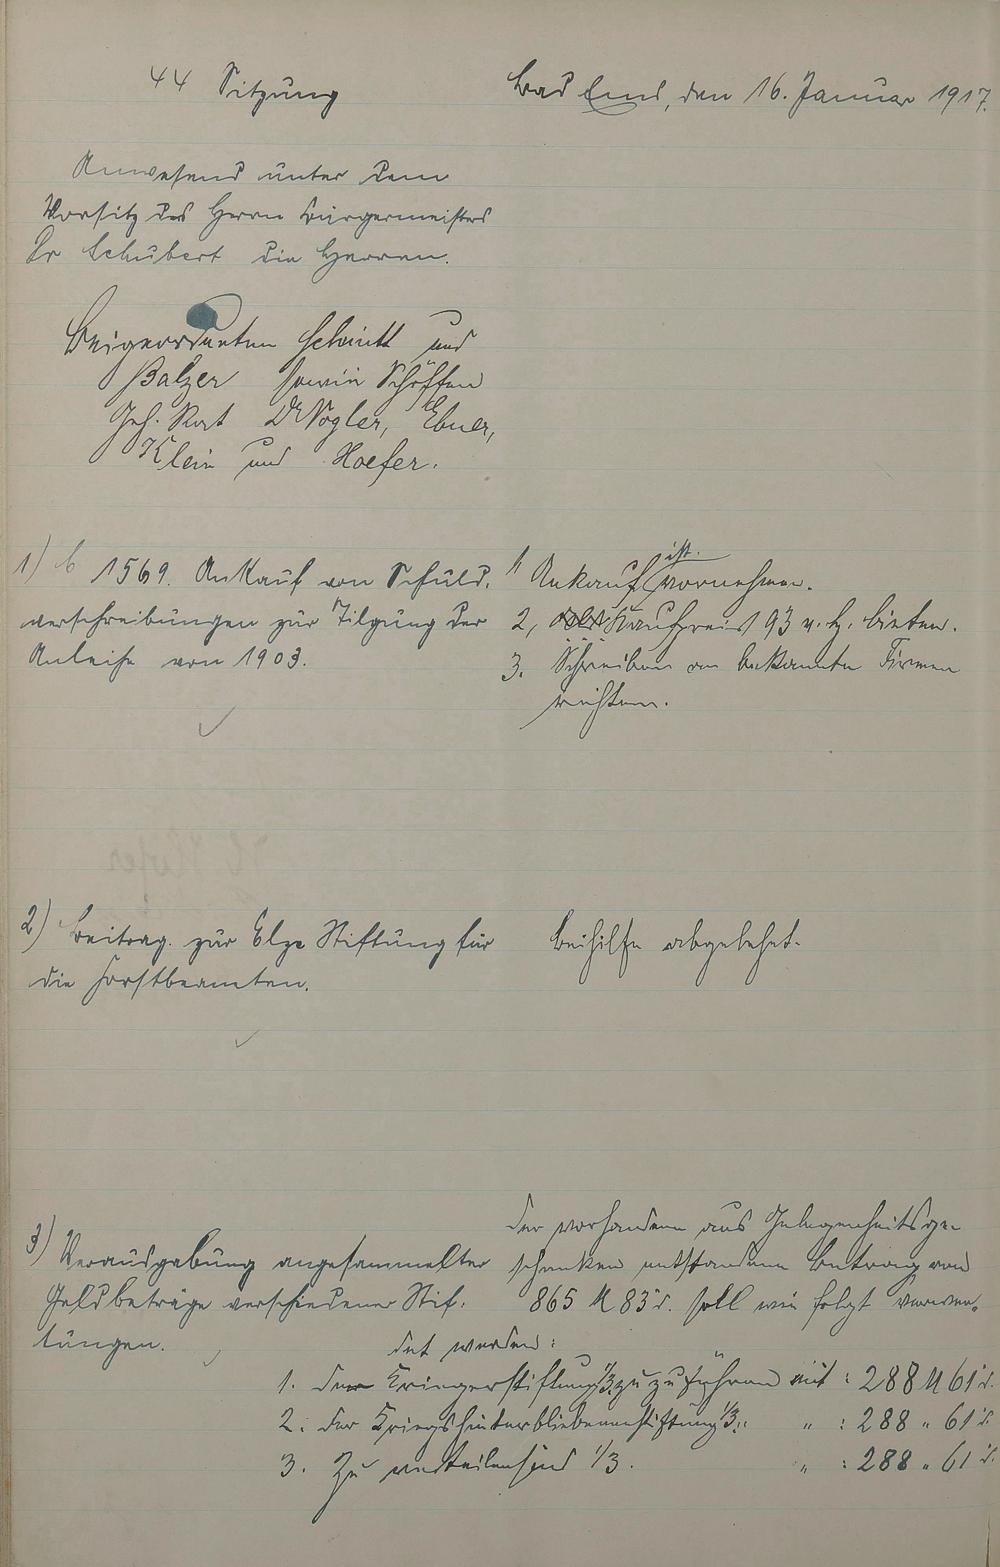 44 Sitzung
Bad Ems, den 16. Januar 1917.
Anwesend unter dem
Vorsitz des Herrn Bürgermeisters
Dr Schubert die Herren.
Beigeordneten Schmitt und
Balzer sowie Schöffen
Geh. Rat Dr Vogler, Ebner,
Klein und Hoefer.
1) b 1569. Ankauf von Schuld-
verschreibungen zur Tilgung der
Anleihe von 1903.
1, Ankauf ist vornehmen.
2, Kaufpreis 93 v. H. bieten.
3. Schreiben an bekannte Firmen
richten.
2) Beitrag zur Elze Stiftung für
die Forstbeamten.
Beihilfe abgelehnt.
3) Verausgabung angesammelter
Geldbeträge verschiedener Stif-
tungen.
Der vorhandene aus Gelegenheitsge-
schenken entstandene Betrag von
865 M 83 d. soll wie folgt verwen-
det werden:
1. der Kriegerstiftung 1/3 zuzuführen mit : 288 M 61 d.
2. der Kriegshinterbliebenenstiftung 1/3 " : 288 " 61 d.
3. Zu verteilen sind 1/3. " : 288 " 61 d.